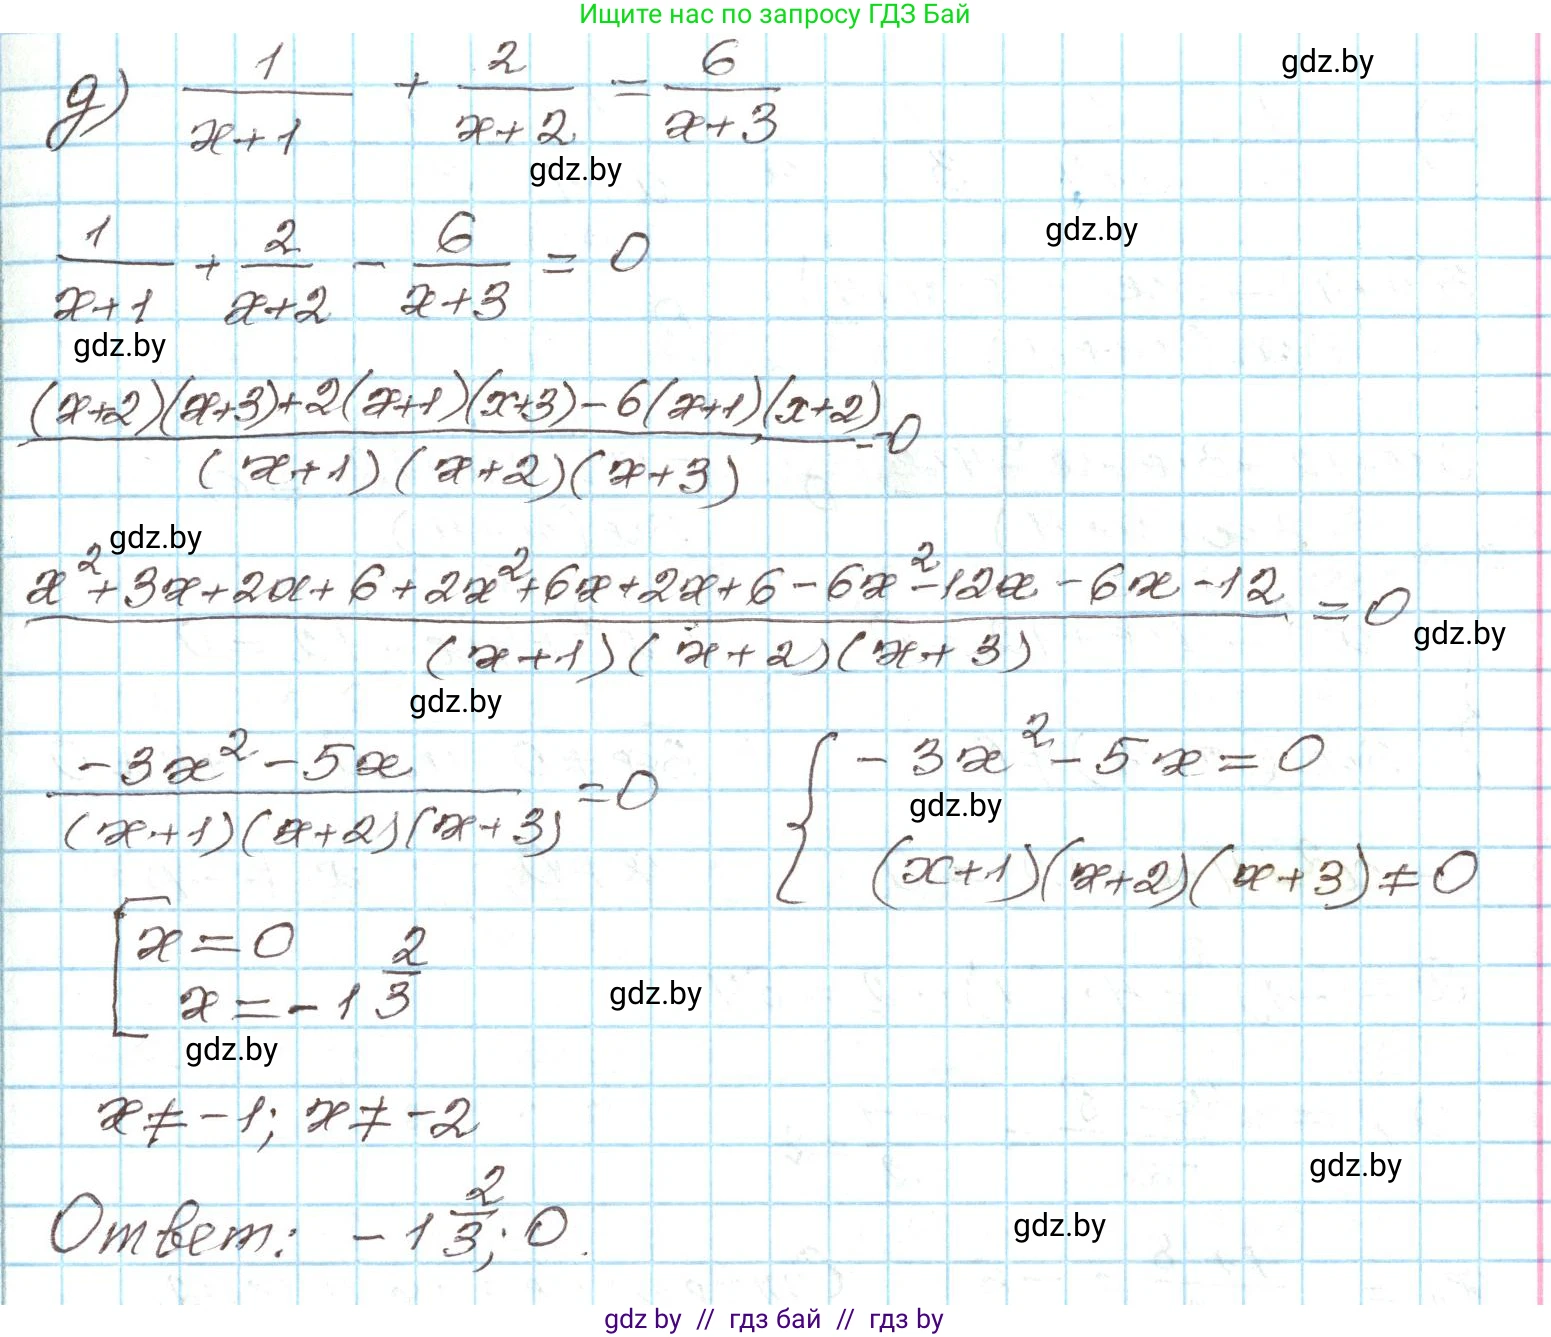 Ищите нас по запросу ГДЗ Бай
gdz.by
д) 1/(x+1) + 2/(x+2) = 6/(x+3)
gdz.by
gdz.by
1/(x+1) + 2/(x+2) - 6/(x+3) = 0
gdz.by
((x+2)(x+3)+2(x+1)(x+3)-6(x+1)(x+2))/((x+1)(x+2)(x+3)) = 0
gdz.by
(x²+3x+2x+6+2x²+6x+2x+6-6x²-12x-6x-12)/((x+1)(x+2)(x+3)) = 0
gdz.by
gdz.by
(-3x²-5x)/((x+1)(x+2)(x+3)) = 0 { -3x²-5x=0
gdz.by
(x+1)(x+2)(x+3)≠0
[ x=0
x=-1 2/3
gdz.by
gdz.by
x≠-1; x≠-2
gdz.by
Ответ: -1 2/3; 0.
gdz.by
gdz by // гдз бай // гдз by